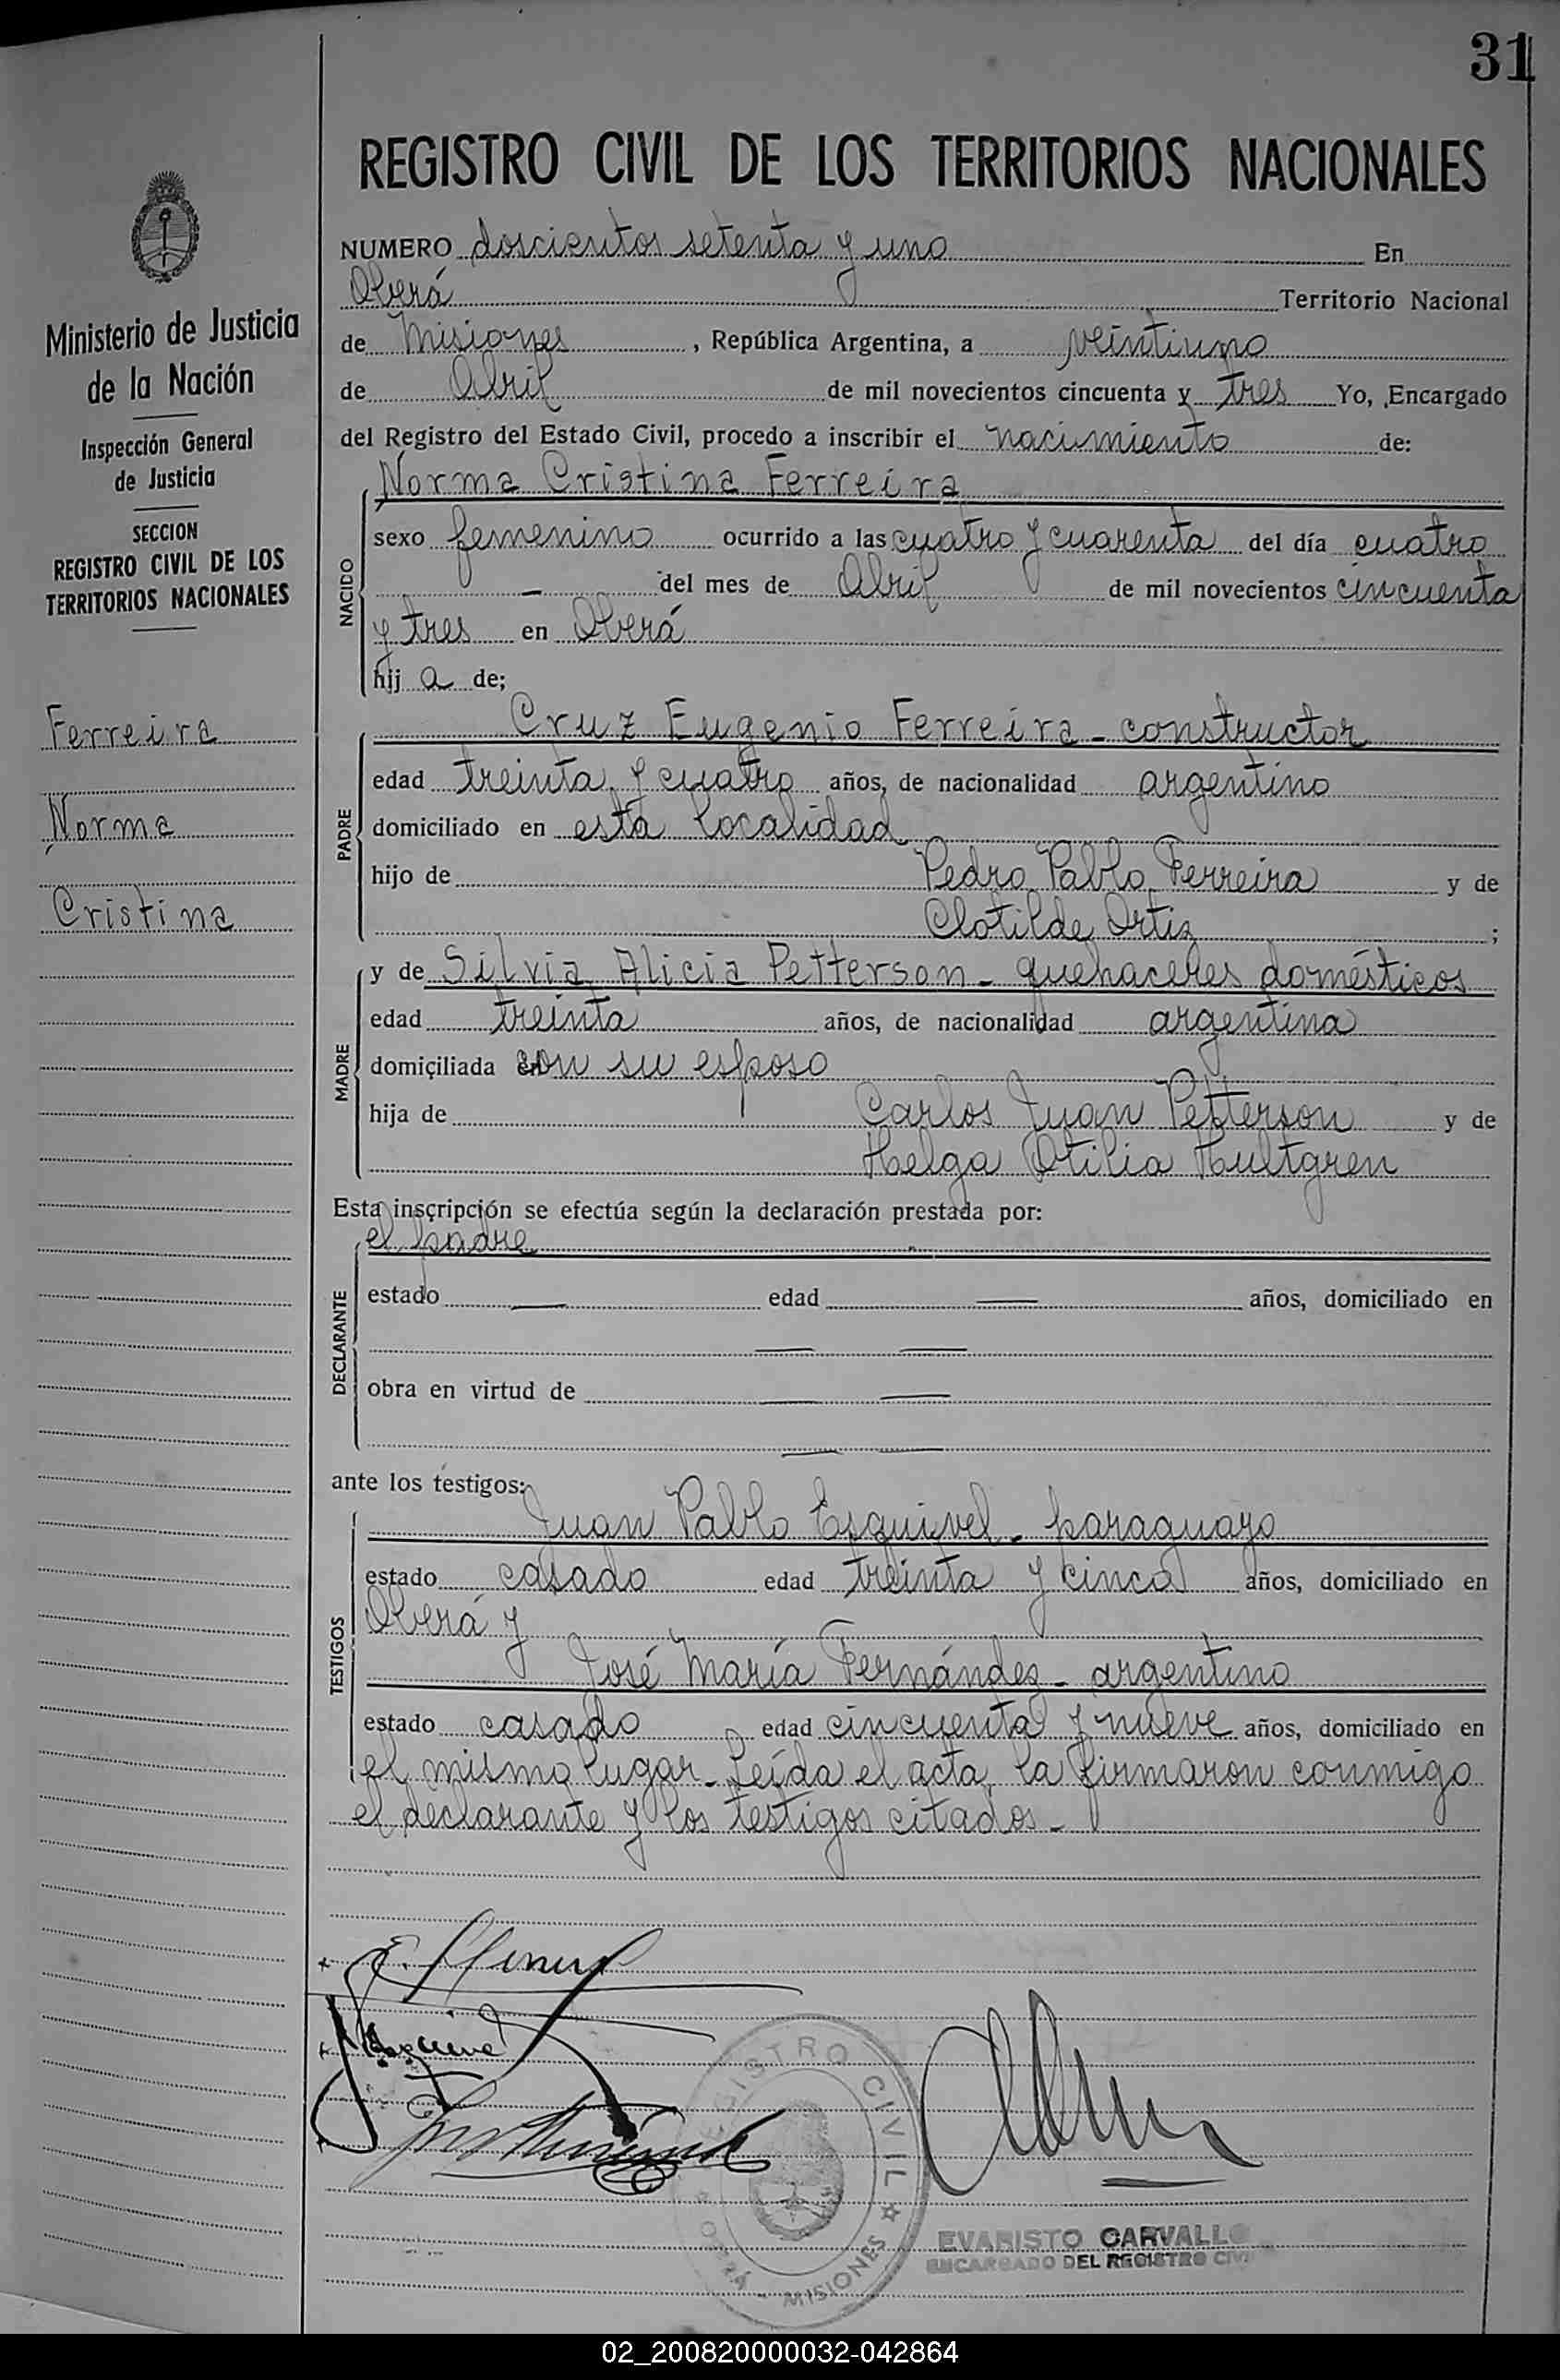 31
REGISTRO CIVIL DE LOS TERRITORIOS NACIONALES
Ministerio de Justicia
de la Nación
Inspección General
de Justicia
SECCION
REGISTRO CIVIL DE LOS
TERRITORIOS NACIONALES
Ferreira
Norma
Cristina
NUMERO doscientos setenta y uno En
Oberá Territorio Nacional
de Misiones , República Argentina, a veintiuno
de Abril de mil novecientos cincuenta y tres Yo, Encargado
del Registro del Estado Civil, procedo a inscribir el nacimiento de:
NACIDO
Norma Cristina Ferreira
sexo femenino ocurrido a las cuatro y cuarenta del día cuatro
— del mes de Abril de mil novecientos cincuenta
y tres en Oberá
hij a de;
PADRE
Cruz Eugenio Ferreira - constructor
edad treinta y cuatro años, de nacionalidad argentino
domiciliado en esta localidad
hijo de Pedro Pablo Ferreira y de
Clotilde Ortiz ;
MADRE
y de Silvia Alicia Petterson - quehaceres domésticos
edad treinta años, de nacionalidad argentina
domiciliada con su esposo
hija de Carlos Juan Petterson y de
Helga Otilia Hultgren
Esta inscripción se efectúa según la declaración prestada por:
DECLARANTE
el padre
estado — edad — años, domiciliado en
— —
obra en virtud de — —
— —
ante los testigos:
TESTIGOS
Juan Pablo Esquivel - paraguayo
estado casado edad treinta y cinco años, domiciliado en
Oberá y
José María Fernández - argentino
estado casado edad cincuenta y nueve años, domiciliado en
el mismo lugar - Leída el acta, la firmaron conmigo
el declarante y los testigos citados -
REGISTRO CIVIL
OBERÁ - MISIONES
EVARISTO CARVALLO
ENCARGADO DEL REGISTRO CIVIL
02_200820000032-042864